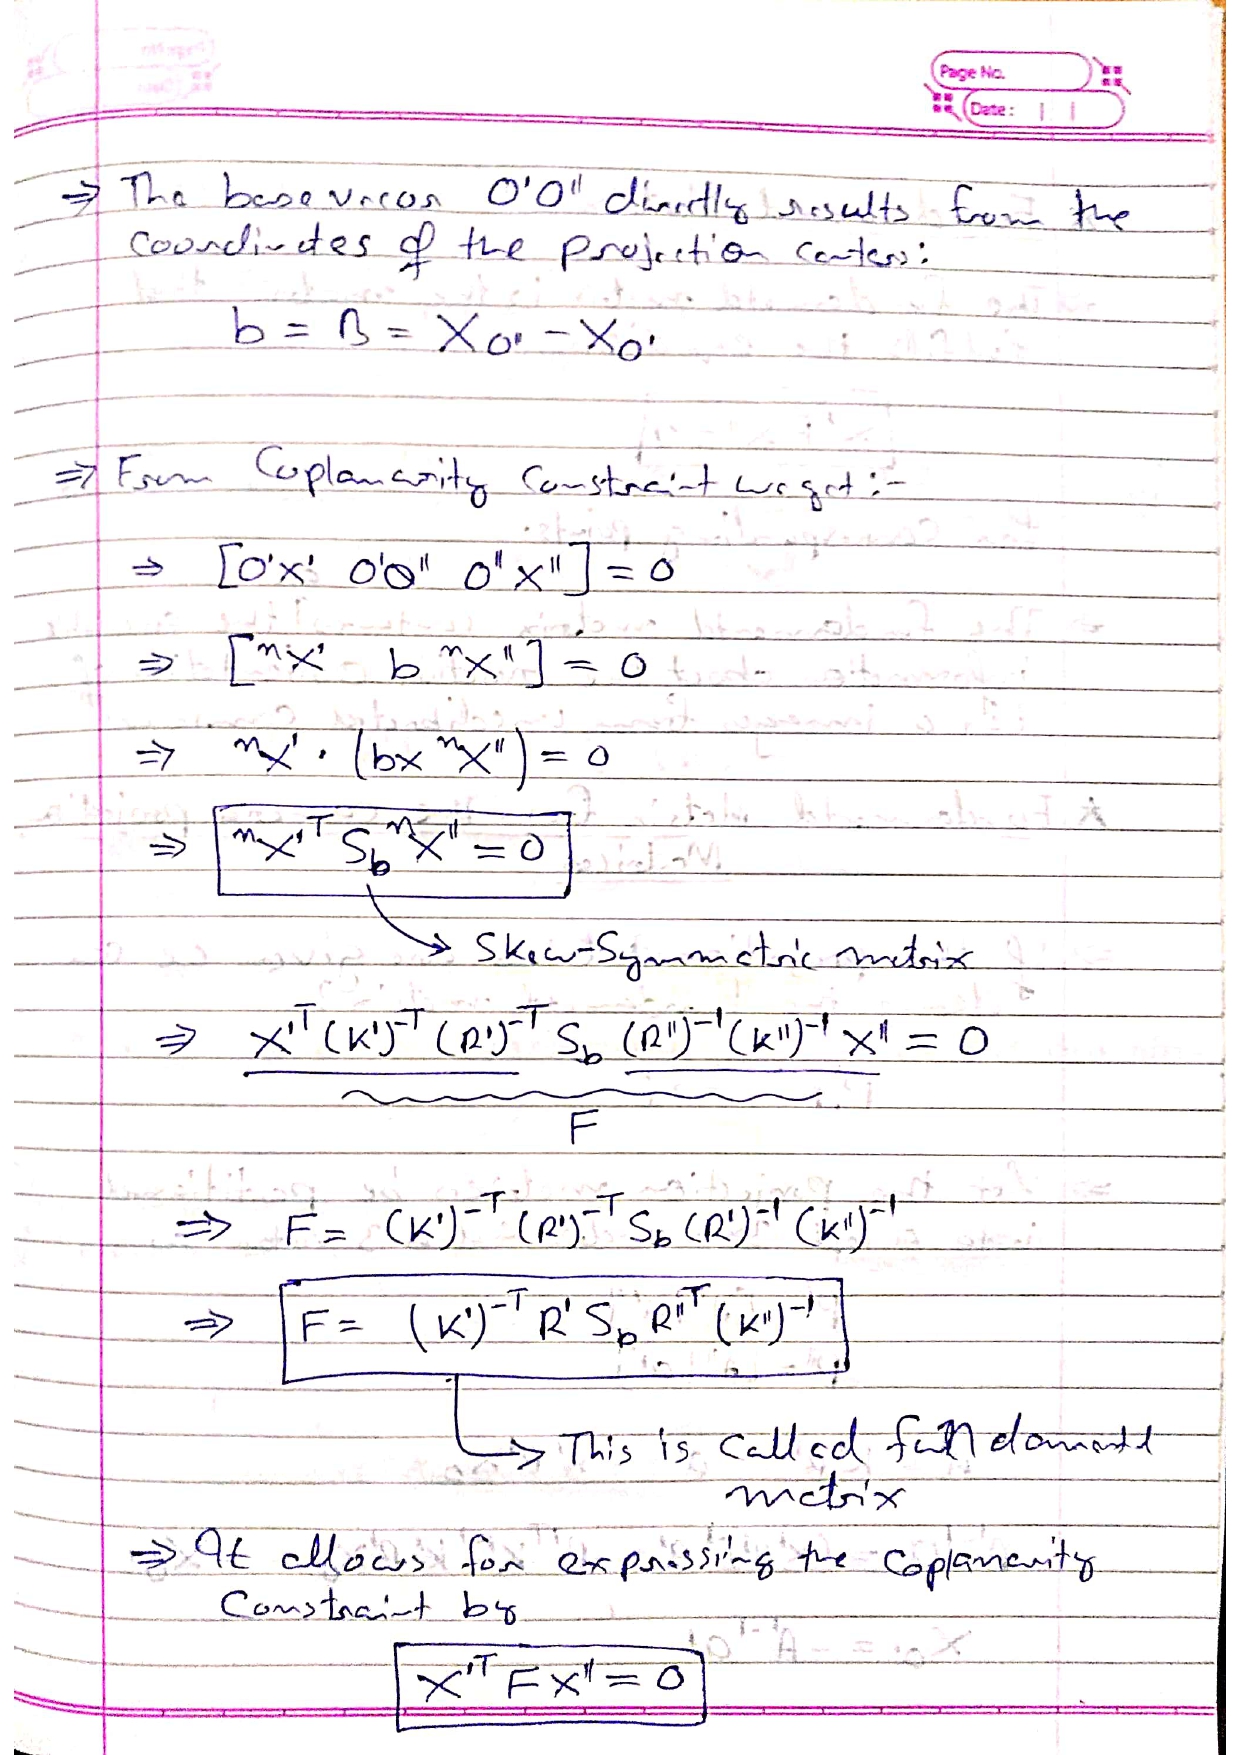 Page No.
Date:
⇒ The base vector O'O" directly results from the
coordinates of the projection centers:
b = B = X_O" − X_O'
⇒ From Coplanarity Constraint we get :-
⇒ [O'X' O'O" O"X"] = 0
⇒ [ⁿX' b ⁿX"] = 0
⇒ ⁿX' · (b× ⁿX") = 0
⇒ ⁿX'ᵀ S_b ⁿX" = 0
→ Skew-Symmetric matrix
⇒ X'ᵀ (K')⁻ᵀ (R')⁻ᵀ S_b (R")⁻¹ (K")⁻¹ X" = 0
F
⇒ F = (K')⁻ᵀ (R')⁻ᵀ S_b (R')⁻¹ (K")⁻¹
⇒ F = (K')⁻ᵀ R' S_b R"ᵀ (K")⁻¹
→ This is called fundamental
matrix
⇒ It allows for expressing the coplanarity
Constraint by
X'ᵀ F X" = 0